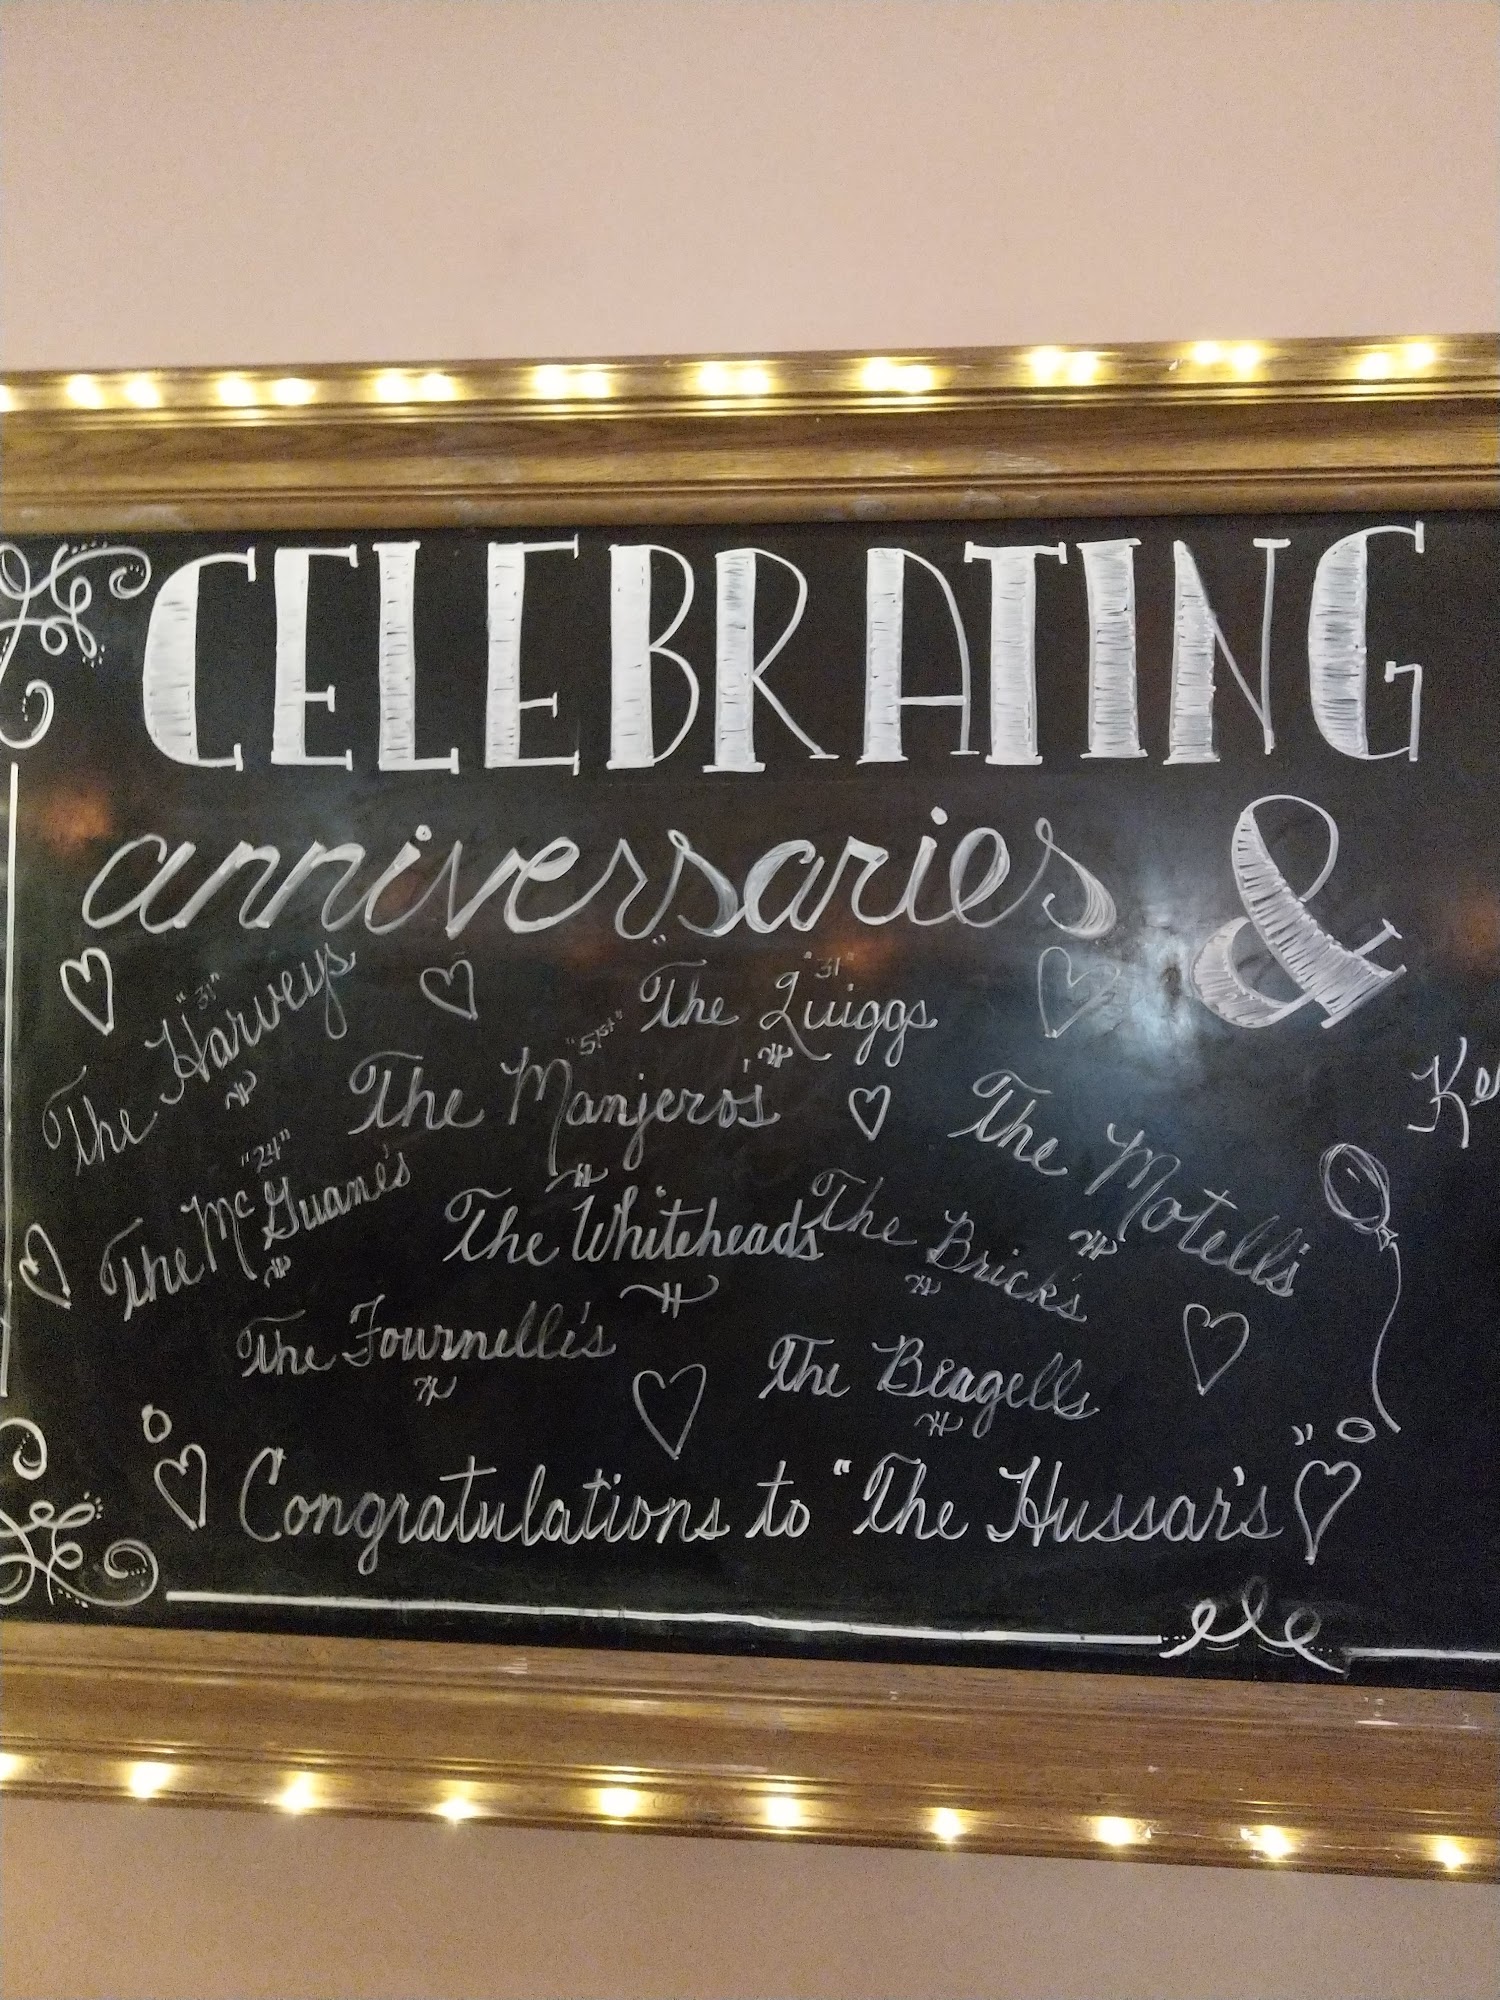 CELEBRATING
anniversaries &
"31"
The Harveys
"31"
The Quiggs
"51st"
The Manjero's
The Motell's
"24"
The McGuane's
The Whiteheads
The Brick's
The Fournelli's
The Beagells
Congratulations to "The Hussar's"
Ke